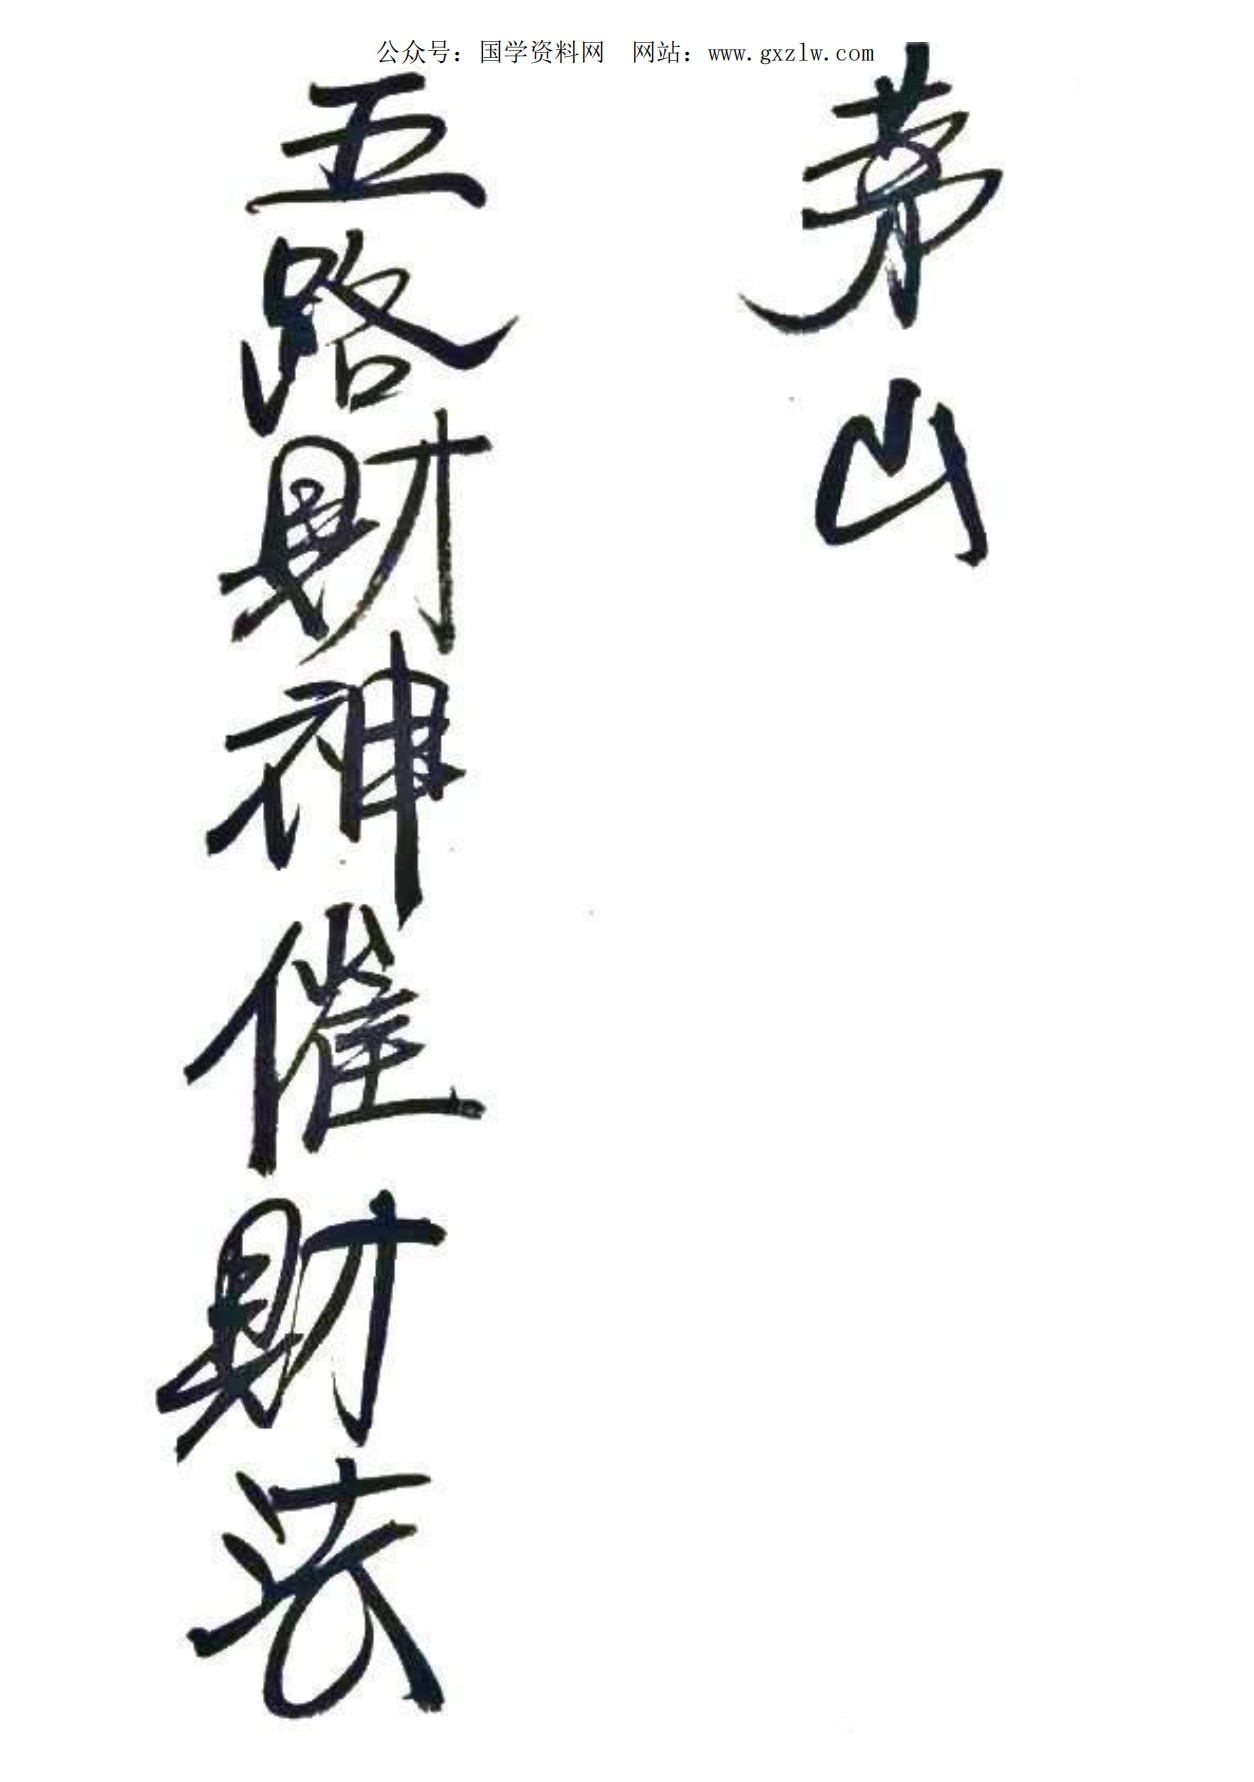 公众号：国学资料网 网站：www.gxzlw.com
茅山
五路財神催財法